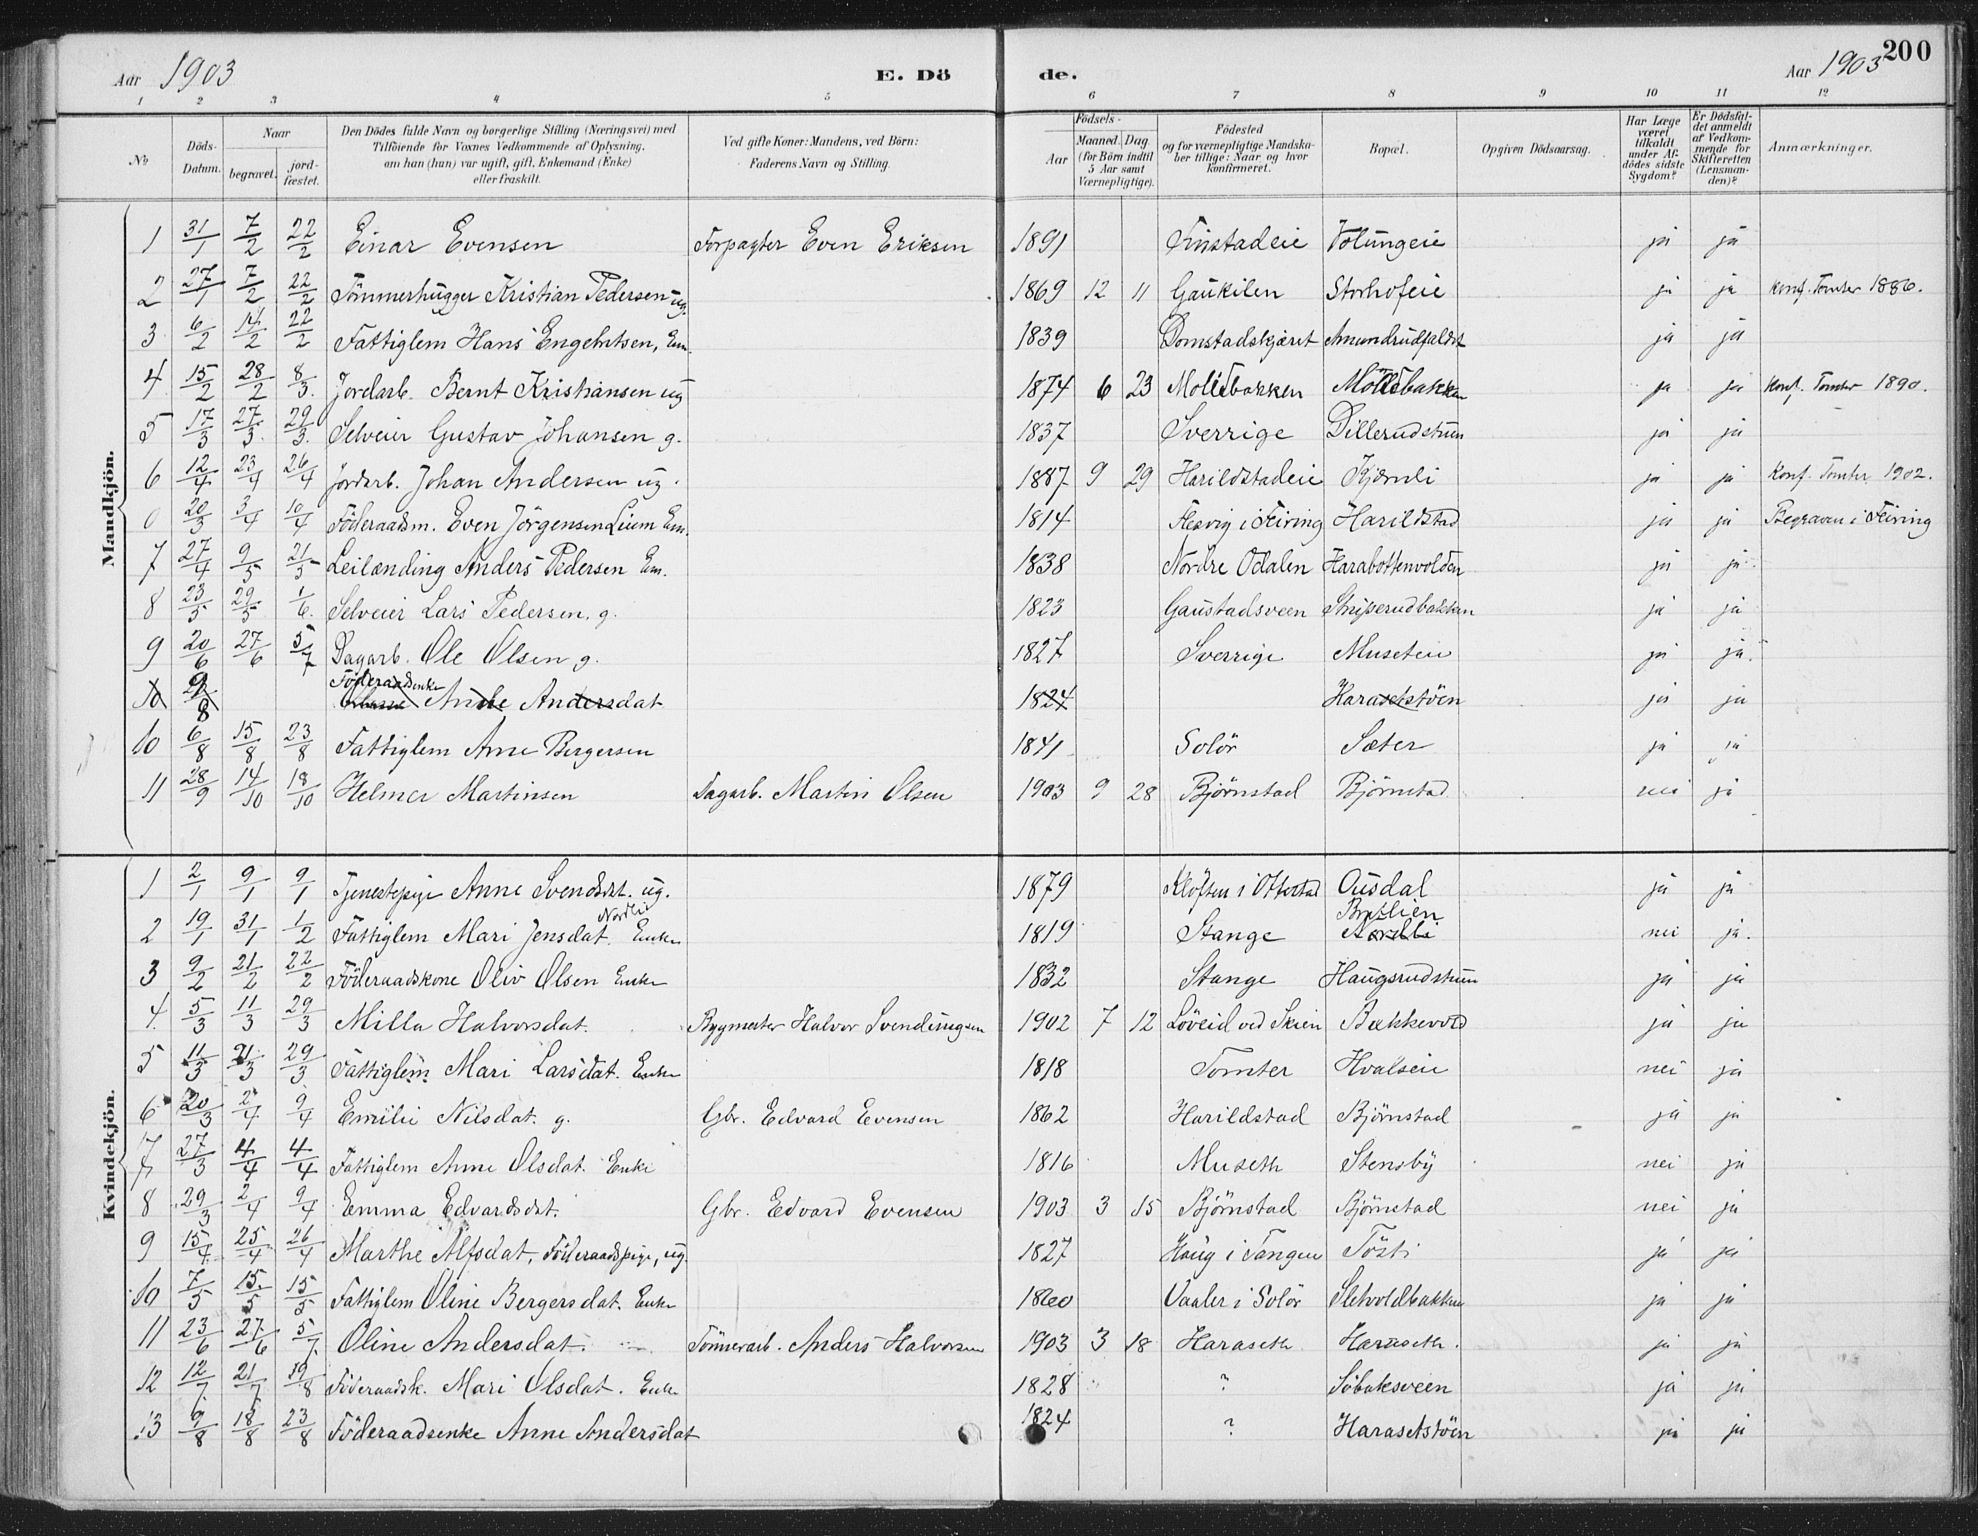 Aar 1903 E. Döde. Aar 1903 200
1 2 3 4 5 6 7 8 9 10 11 12
No
Döds-Datum.
Naar begravet. jordfæstet.
Den Dödes fulde Navn og borgerlige Stilling (Næringsvei) med Tilföiende for Voxnes Vedkommende af Oplysning, om han (hun) var ugift, gift, Enkemand (Enke) eller fraskilt.
Ved gifte Koner: Mandens, ved Börn: Faderens Navn og Stilling.
Födsels- Aar Maaned. Dag (for Börn indtil 5 Aar samt Værnepligtige).
Födested og for værnepligtige Mandskaber tillige: Naar og hvor konfirmeret.
Bopæl.
Opgiven Dödsaarsag.
Har Læge været tilkaldt under Afdödes sidste Sygdom?
Er Dödsfaldet anmeldt af Vedkommende for Skifteretten (Lensmanden)?
Anmærkninger.
Mandkjön.
1 31/1 7/2 22/2 Einar Evensen Forpagter Even Eriksen 1891 Finstadeie Volungeie ja ja
2 27/1 7/2 22/2 Tömmerhugger Kristian Pedersen ug. 1869 12 11 Gaukilen Storhofeie ja ja Konf. Tomter 1886.
3 6/2 14/2 22/2 Fattiglem Hans Engebretsen, Em. 1839 Domstadskjæret Amundrudfaldet ja ja
4 15/2 28/2 8/3. Jordarb. Bernt Kristiansen ug 1874 6 23 Mollebakken Möllebakken ja ja Konf. Tomter 1890.
5 17/3 27/3. 29/3. Selveier Gustav Johansen g. 1837 Sverrige Dillerudstuen ja ja
6 12/4 23/4 26/4 Jordarb. Johan Andersen ug. 1887 9 29 Harildstadeie Kjernli ja ja Konf. Tomter 1902.
0 20/3 3/4 10/4 Föderaadsm. Even Jörgensen Lium Em. 1814 Flesvig i Feiring Harildstad ja ja Begraven i Feiring
7 27/4 9/5 21/5 Leilænding Anders Pedersen Em. 1838 Nordre Odalen Harabottenvolden ja ja
8 23/5 29/5 1/6. Selveier Lars Pedersen, g. 1823 Gaustadsveen Striperudbakken ja ja
9 20/6 27/6 5/7 Dagarb. Ole Olsen g. 1827 Sverrige Museteie ja ja
10 9/8 Föderaadsenke Anne Andersdat 1824 Harasetstöen ja ja
10 6/8 15/8 23/8 Fattiglem Arne Bergersen 1841 Solör Sæter ja ja
11 28/9 14/10 18/10 Helmer Martinsen Dagarb. Martin Olsen 1903 9 28 Björnstad Björnstad nei ja
Kvindekjön.
1 2/1 9/1 9/1 Tjenestepige Anne Svendsdt. ug. 1879 Klöften i Ottestad Ousdal ja ja
2 19/1 31/1 1/2 Fattiglem Mari Jensdat. Nordli Enke 1819 Stange Bratlien nei ja.
3 9/2 21/2 22/2 Föderaadskone Oliv Olsen Enke 1832 Stange Haugsrudstuen ja ja
4. 5/3 11/3 29/3 Milla Halvorsdat. Bygmester Halvor Svendungsen 1902 7 12 Löveid ved Skien Bækkevold ja ja
5 11/3 21/3 29/3 Fattiglem Mari Larsdat. Enke 1818 Tomter Hvalseie nei ja
6 20/3 2/4 9/4 Emilie Nilsdat. g. Gbr. Edvard Evensen 1862 Harildstad Björnstad ja ja
7 27/3 4/4 4/4 Fattiglem Anne Olsdat. Enke 1816 Museth Stensby nei ja
8 29/3 2/4 9/4 Emma Edvardsdat. Gbr. Edvard Evensen 1903 3 15 Björnstad Björnstad nei ja
9 15/4. 25/4 26/4 Marthe Alfsdat, Föderaadspige, ug. 1827 Haug i Tangen Tösti ja ja
10 7/5 15/5 15/5 Fattiglem Oline Bergersdat. Enke Vaaler i Solör Sletvoldbakken ja ja
11 23/6 27/6 5/7. Oline Andersdat. Tömmerarb. Anders Halvorsen 1903 3 18 Haraseth Haraseth. ja ja
12 12/7. 21/7 19/8 Föderaadsk. Mari Olsdat. Enke 1828 ? Söbaksveen ja ja
13 9/8 18/8 23/8 Föderaadsenke Anne Andersdat 1824 ? Harasetstöen ja ja